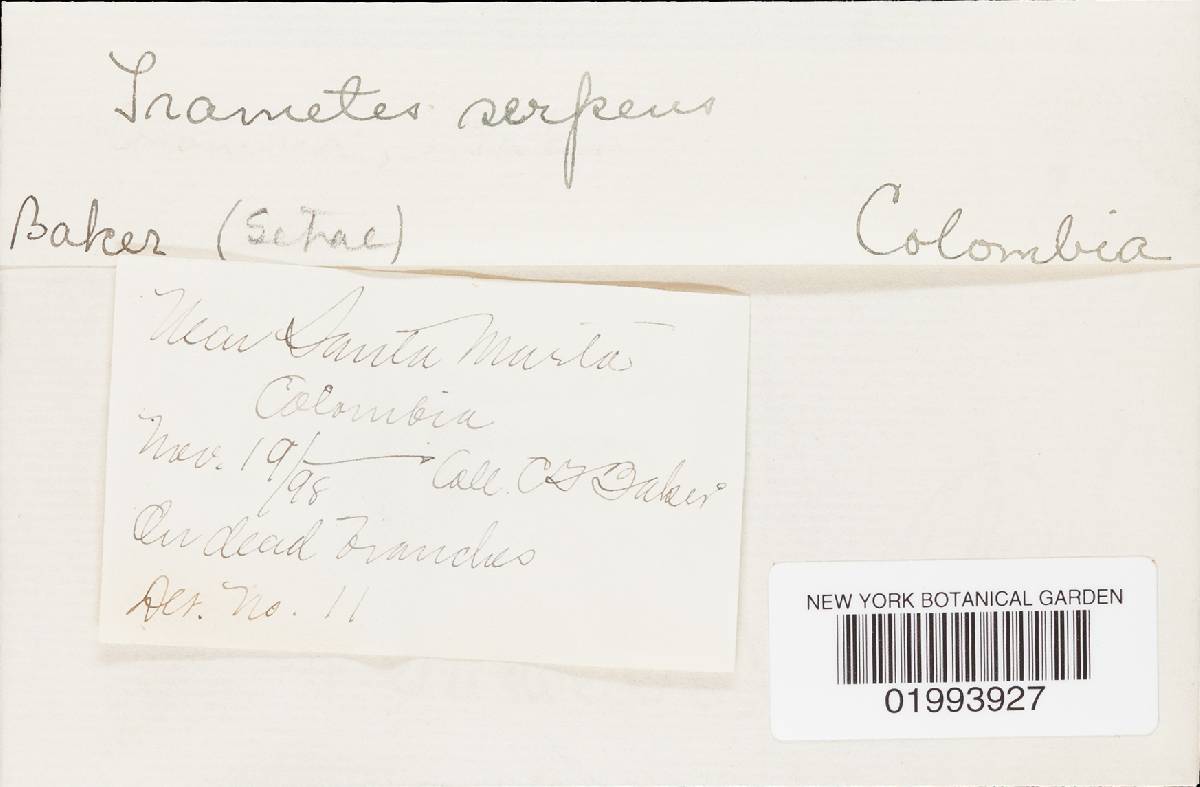 Trametes serpens
Baker (Setae) Colombia
Near Santa Marta
Colombia
Nov. 19/98 — Coll. C F Baker
On dead branches
Det. No. 11
NEW YORK BOTANICAL GARDEN
01993927